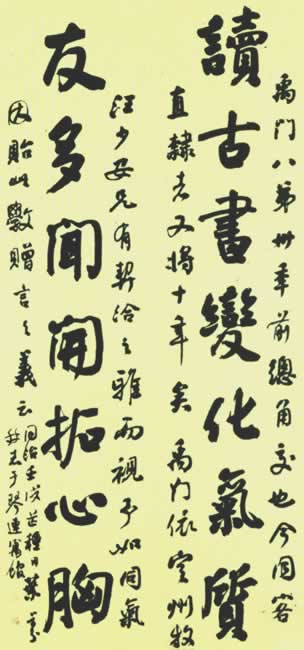 禹門八弟卅年前總角交也今同客
讀古書變化氣質
直隸者又將十年矣禹門依定州牧
汪少安兄有契洽之雅而視予如同氣
友多聞開拓心胸
因貽此贈言之義云
同治壬戌芒種日葉
琴連寓館